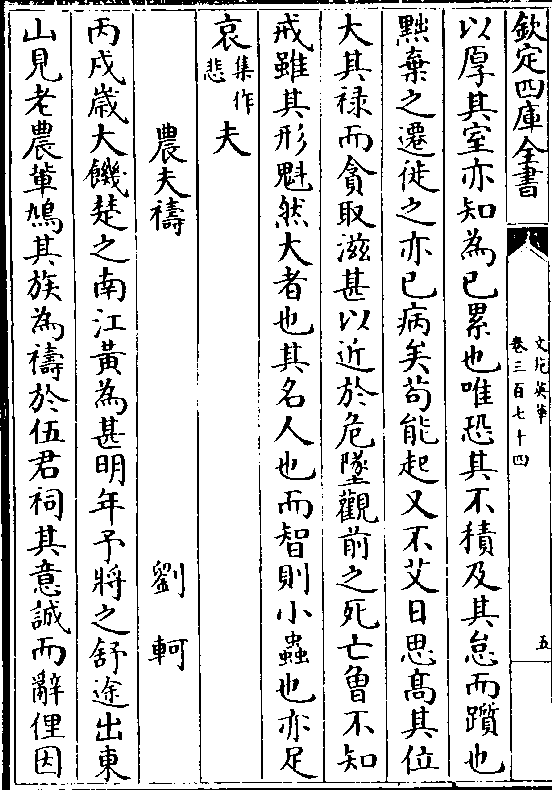 欽定四庫全書
文苑英華
卷三百七十四
五
以厚其室亦知為已累也唯恐其不積及其怠而躓也
黜棄之遷徙之亦已病矣茍能起又不艾日思髙其位
大其禄而貪取滋甚以近於危墜觀前之死亡曾不知
戒雖其形魁然大者也其名人也而智則小蟲也亦足
哀集作悲夫
農夫禱　劉軻
丙戌嵗大饑楚之南江黄為甚明年予將之舒途出東
山見老農軰鳩其族為禱於伍君祠其意誠而辭俚因